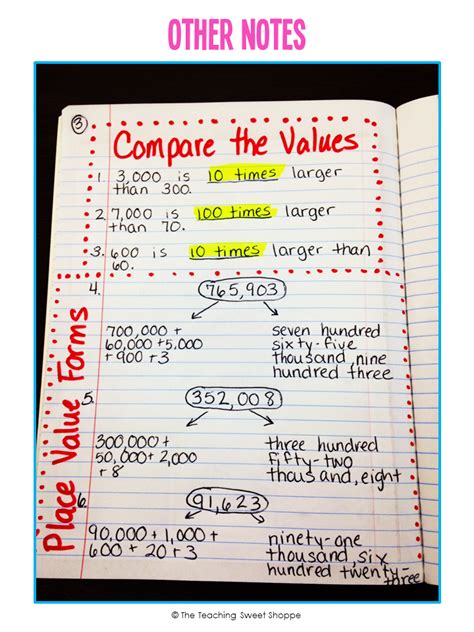 OTHER NOTES
3
Compare the Values
1. 3,000 is 10 times larger
than 300.
2. 7,000 is 100 times larger
than 70.
3. 600 is 10 times larger than
60.
Place Value Forms
4.
765,903
700,000 +
60,000 + 5,000
+ 900 + 3
seven hundred
sixty-five
thousand, nine
hundred three
5.
352,008
300,000 +
50,000 + 2,000
+ 8
three hundred
fifty-two
thousand, eight
6.
91,623
90,000 + 1,000 +
600 + 20 + 3
ninety-one
thousand, six
hundred twenty-
three
© The Teaching Sweet Shoppe